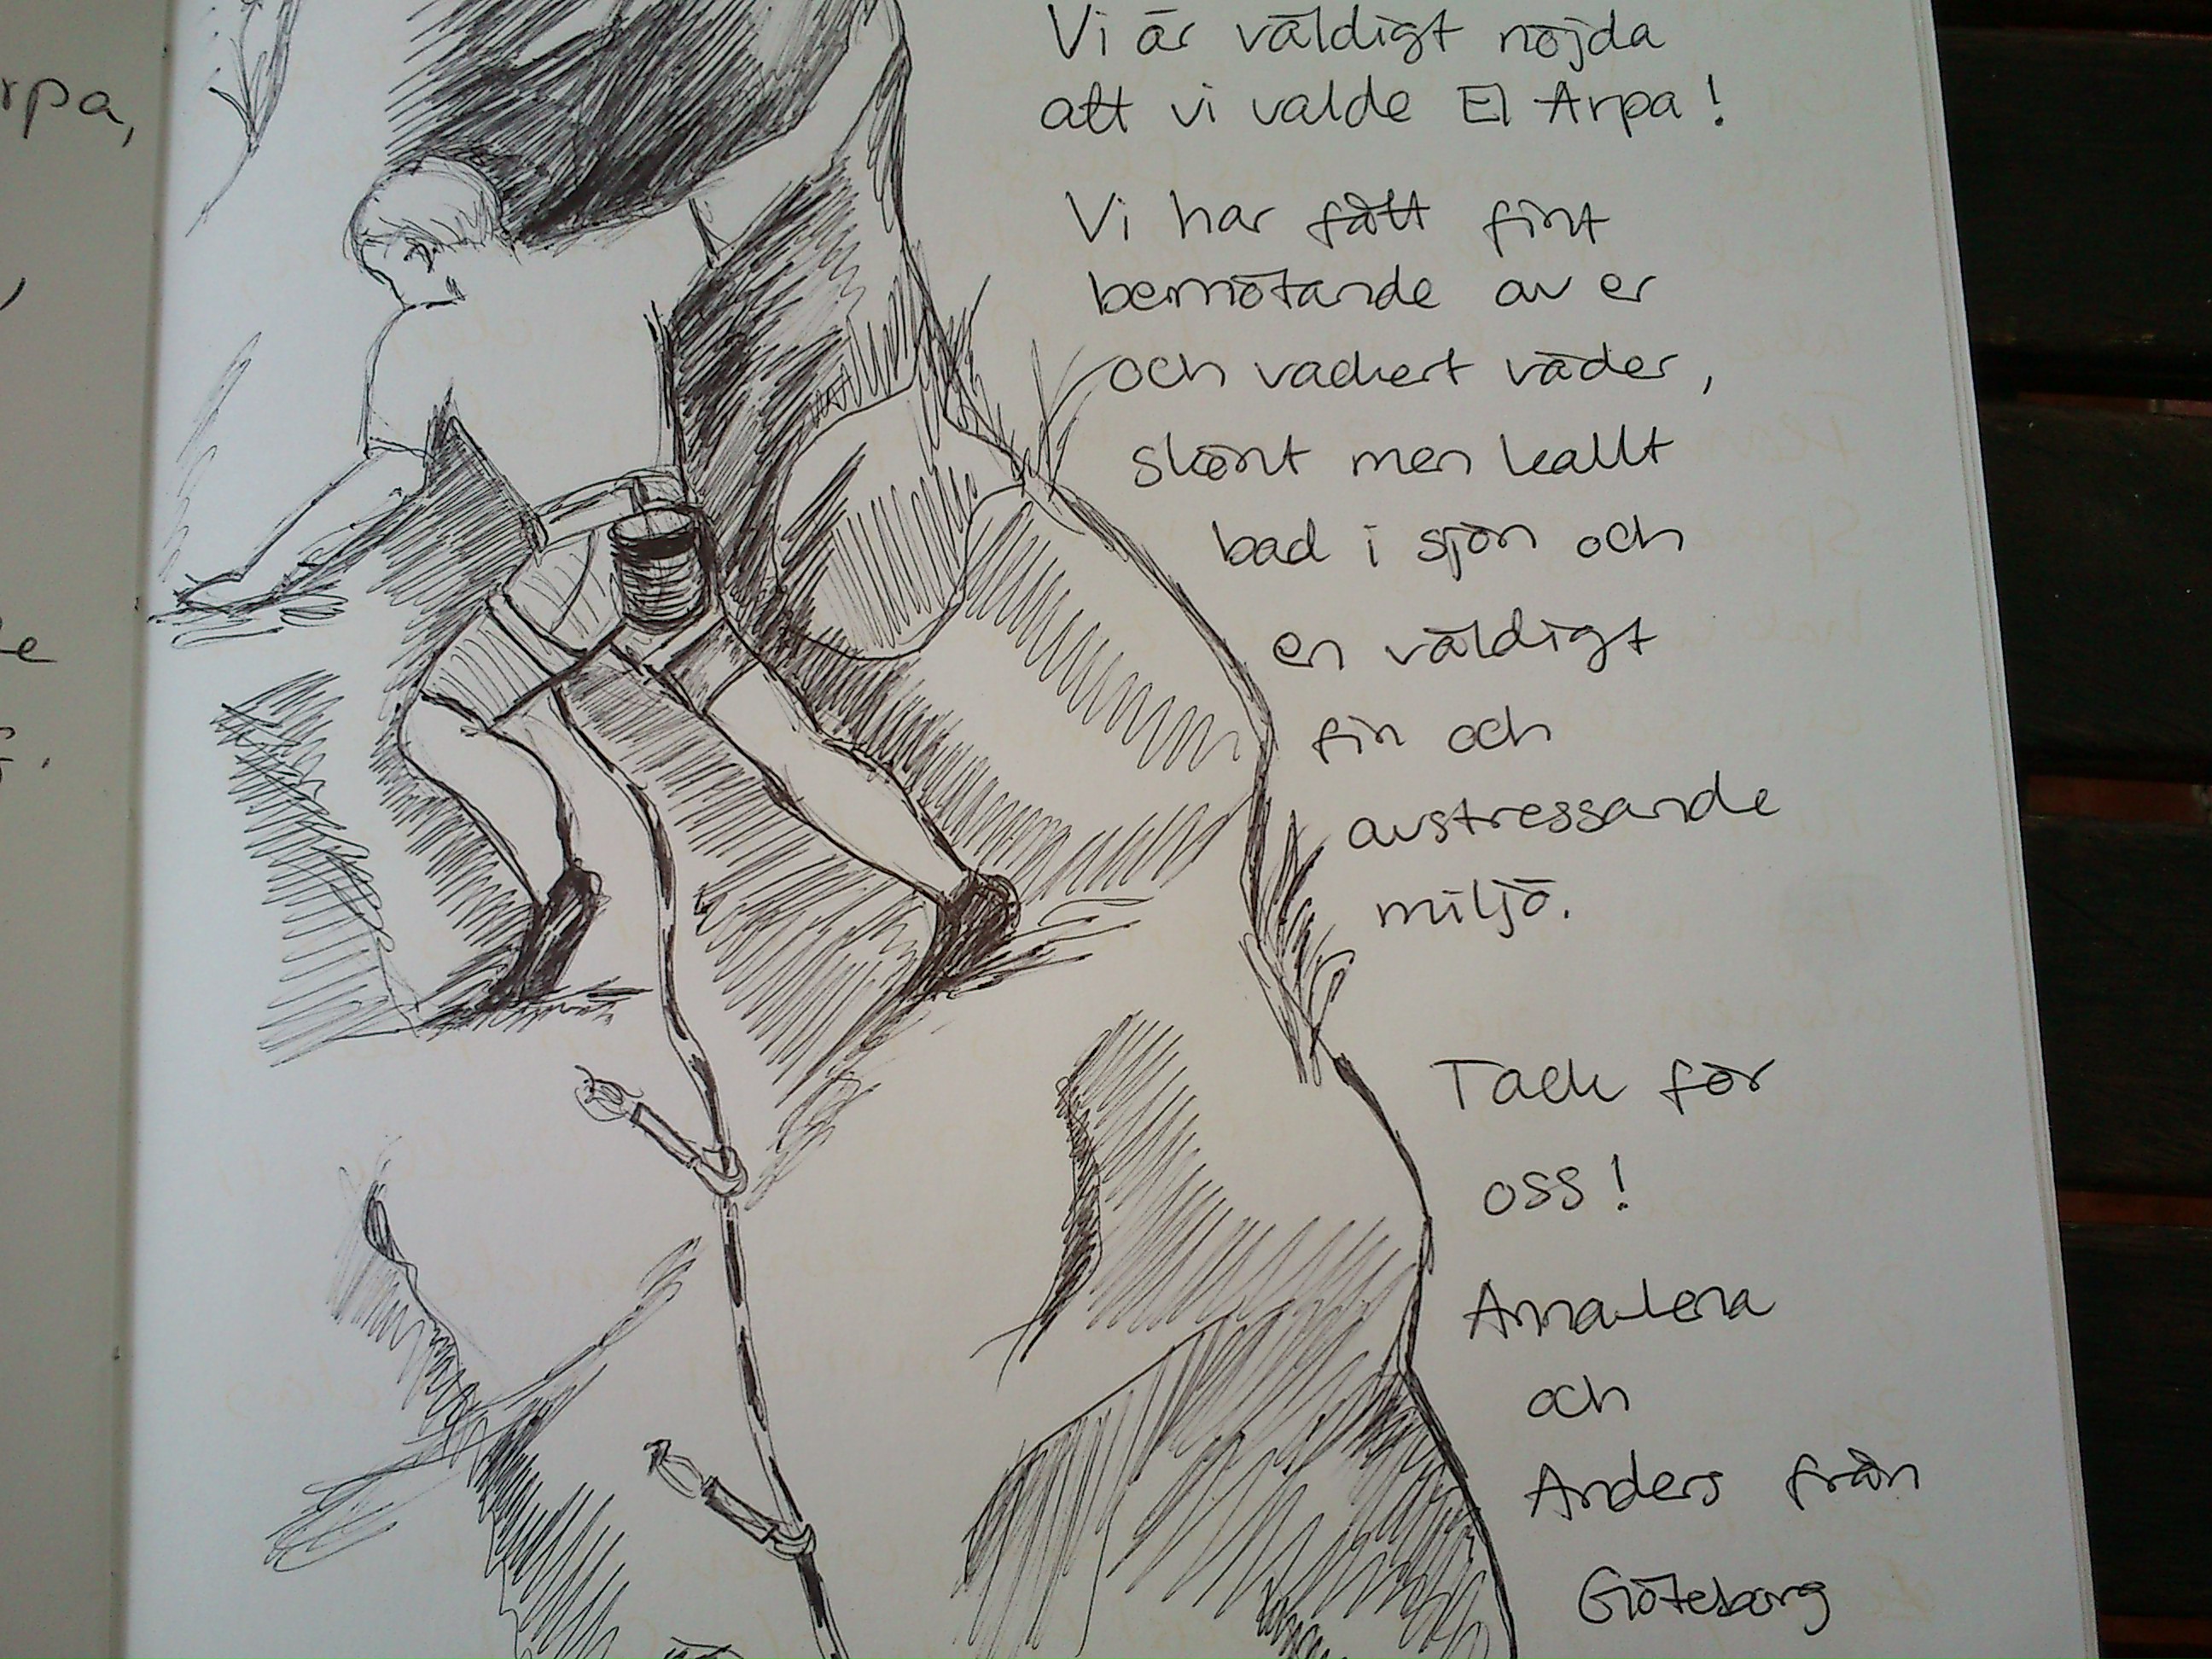 rpa,
Vi är väldigt nöjda
att vi valde El Arpa!
Vi har fått fint
bemötande av er
och vackert väder,
skönt men kallt
bad i sjön och
en väldigt
fin och
avstressande
miljö.
Tack för
oss!
Annalena
och
Anders från
Göteborg